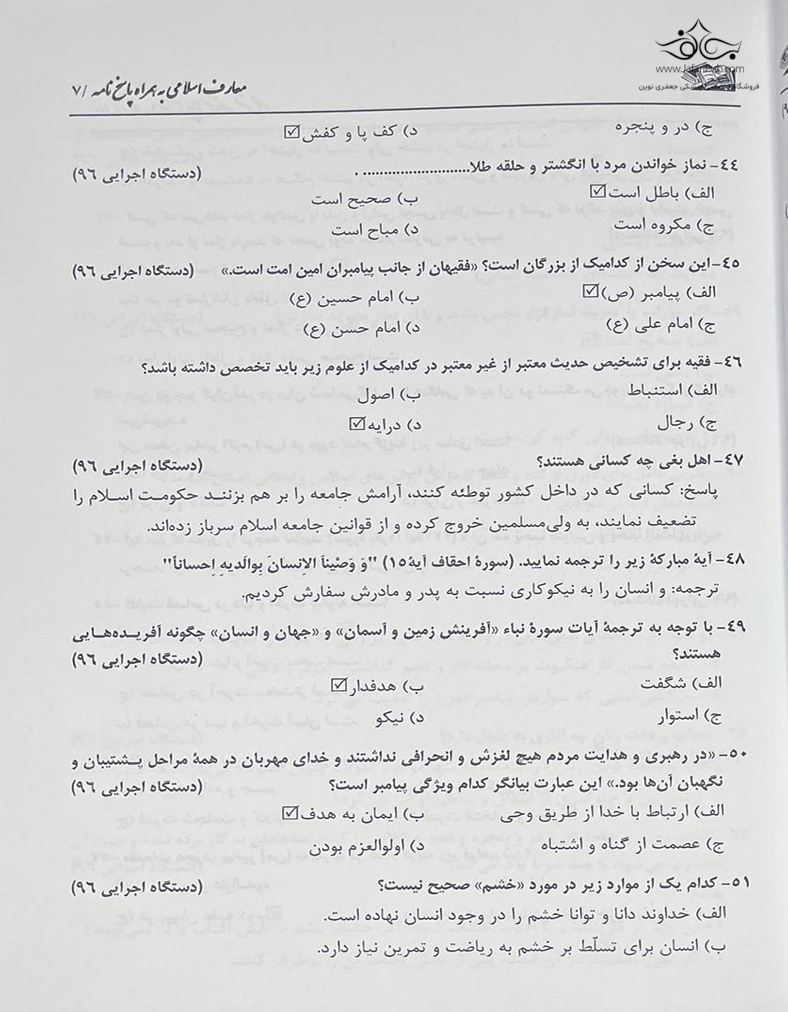 بجافو
www.Jafarinvb.com
معارف اسلامی به همراه پاسخ نامه /۷
ج) در و پنجره د) کف پا و کفش ☑
۴۴- نماز خواندن مرد با انگشتر و حلقه طلا.......................... . (دستگاه اجرایی ۹۶)
الف) باطل است ☑ ب) صحیح است
ج) مکروه است د) مباح است
۴۵- این سخن از کدامیک از بزرگان است؟ «فقیهان از جانب پیامبران امین امت است.» (دستگاه اجرایی ۹۶)
الف) پیامبر (ص) ☑ ب) امام حسین (ع)
ج) امام علی (ع) د) امام حسن (ع)
۴۶- فقیه برای تشخیص حدیث معتبر از غیر معتبر در کدامیک از علوم زیر باید تخصص داشته باشد؟
الف) استنباط ب) اصول
ج) رجال د) درایه ☑
۴۷- اهل بغی چه کسانی هستند؟ (دستگاه اجرایی ۹۶)
پاسخ: کسانی که در داخل کشور توطئه کنند، آرامش جامعه را بر هم بزنند حکومت اسلام را
تضعیف نمایند، به ولی‌مسلمین خروج کرده و از قوانین جامعه اسلام سرباز زده‌اند.
۴۸- آیهٔ مبارکهٔ زیر را ترجمه نمایید. (سورهٔ احقاف آیهٔ ۱۵) "وَ وَصَّیناَ الاِنسانَ بِوالَدیهِ اِحساناً"
ترجمه: و انسان را به نیکوکاری نسبت به پدر و مادرش سفارش کردیم.
۴۹- با توجه به ترجمهٔ آیات سورهٔ نباء «آفرینش زمین و آسمان» و «جهان و انسان» چگونه آفریده‌هایی
هستند؟ (دستگاه اجرایی ۹۶)
الف) شگفت ب) هدفدار ☑
ج) استوار د) نیکو
۵۰- «در رهبری و هدایت مردم هیچ لغزش و انحرافی نداشتند و خدای مهربان در همهٔ مراحل پشتیبان و
نگهبان آن‌ها بود.» این عبارت بیانگر کدام ویژگی پیامبر است؟ (دستگاه اجرایی ۹۶)
الف) ارتباط با خدا از طریق وحی ب) ایمان به هدف ☑
ج) عصمت از گناه و اشتباه د) اولوالعزم بودن
۵۱- کدام یک از موارد زیر در مورد «خشم» صحیح نیست؟ (دستگاه اجرایی ۹۶)
الف) خداوند دانا و توانا خشم را در وجود انسان نهاده است.
ب) انسان برای تسلّط بر خشم به ریاضت و تمرین نیاز دارد.